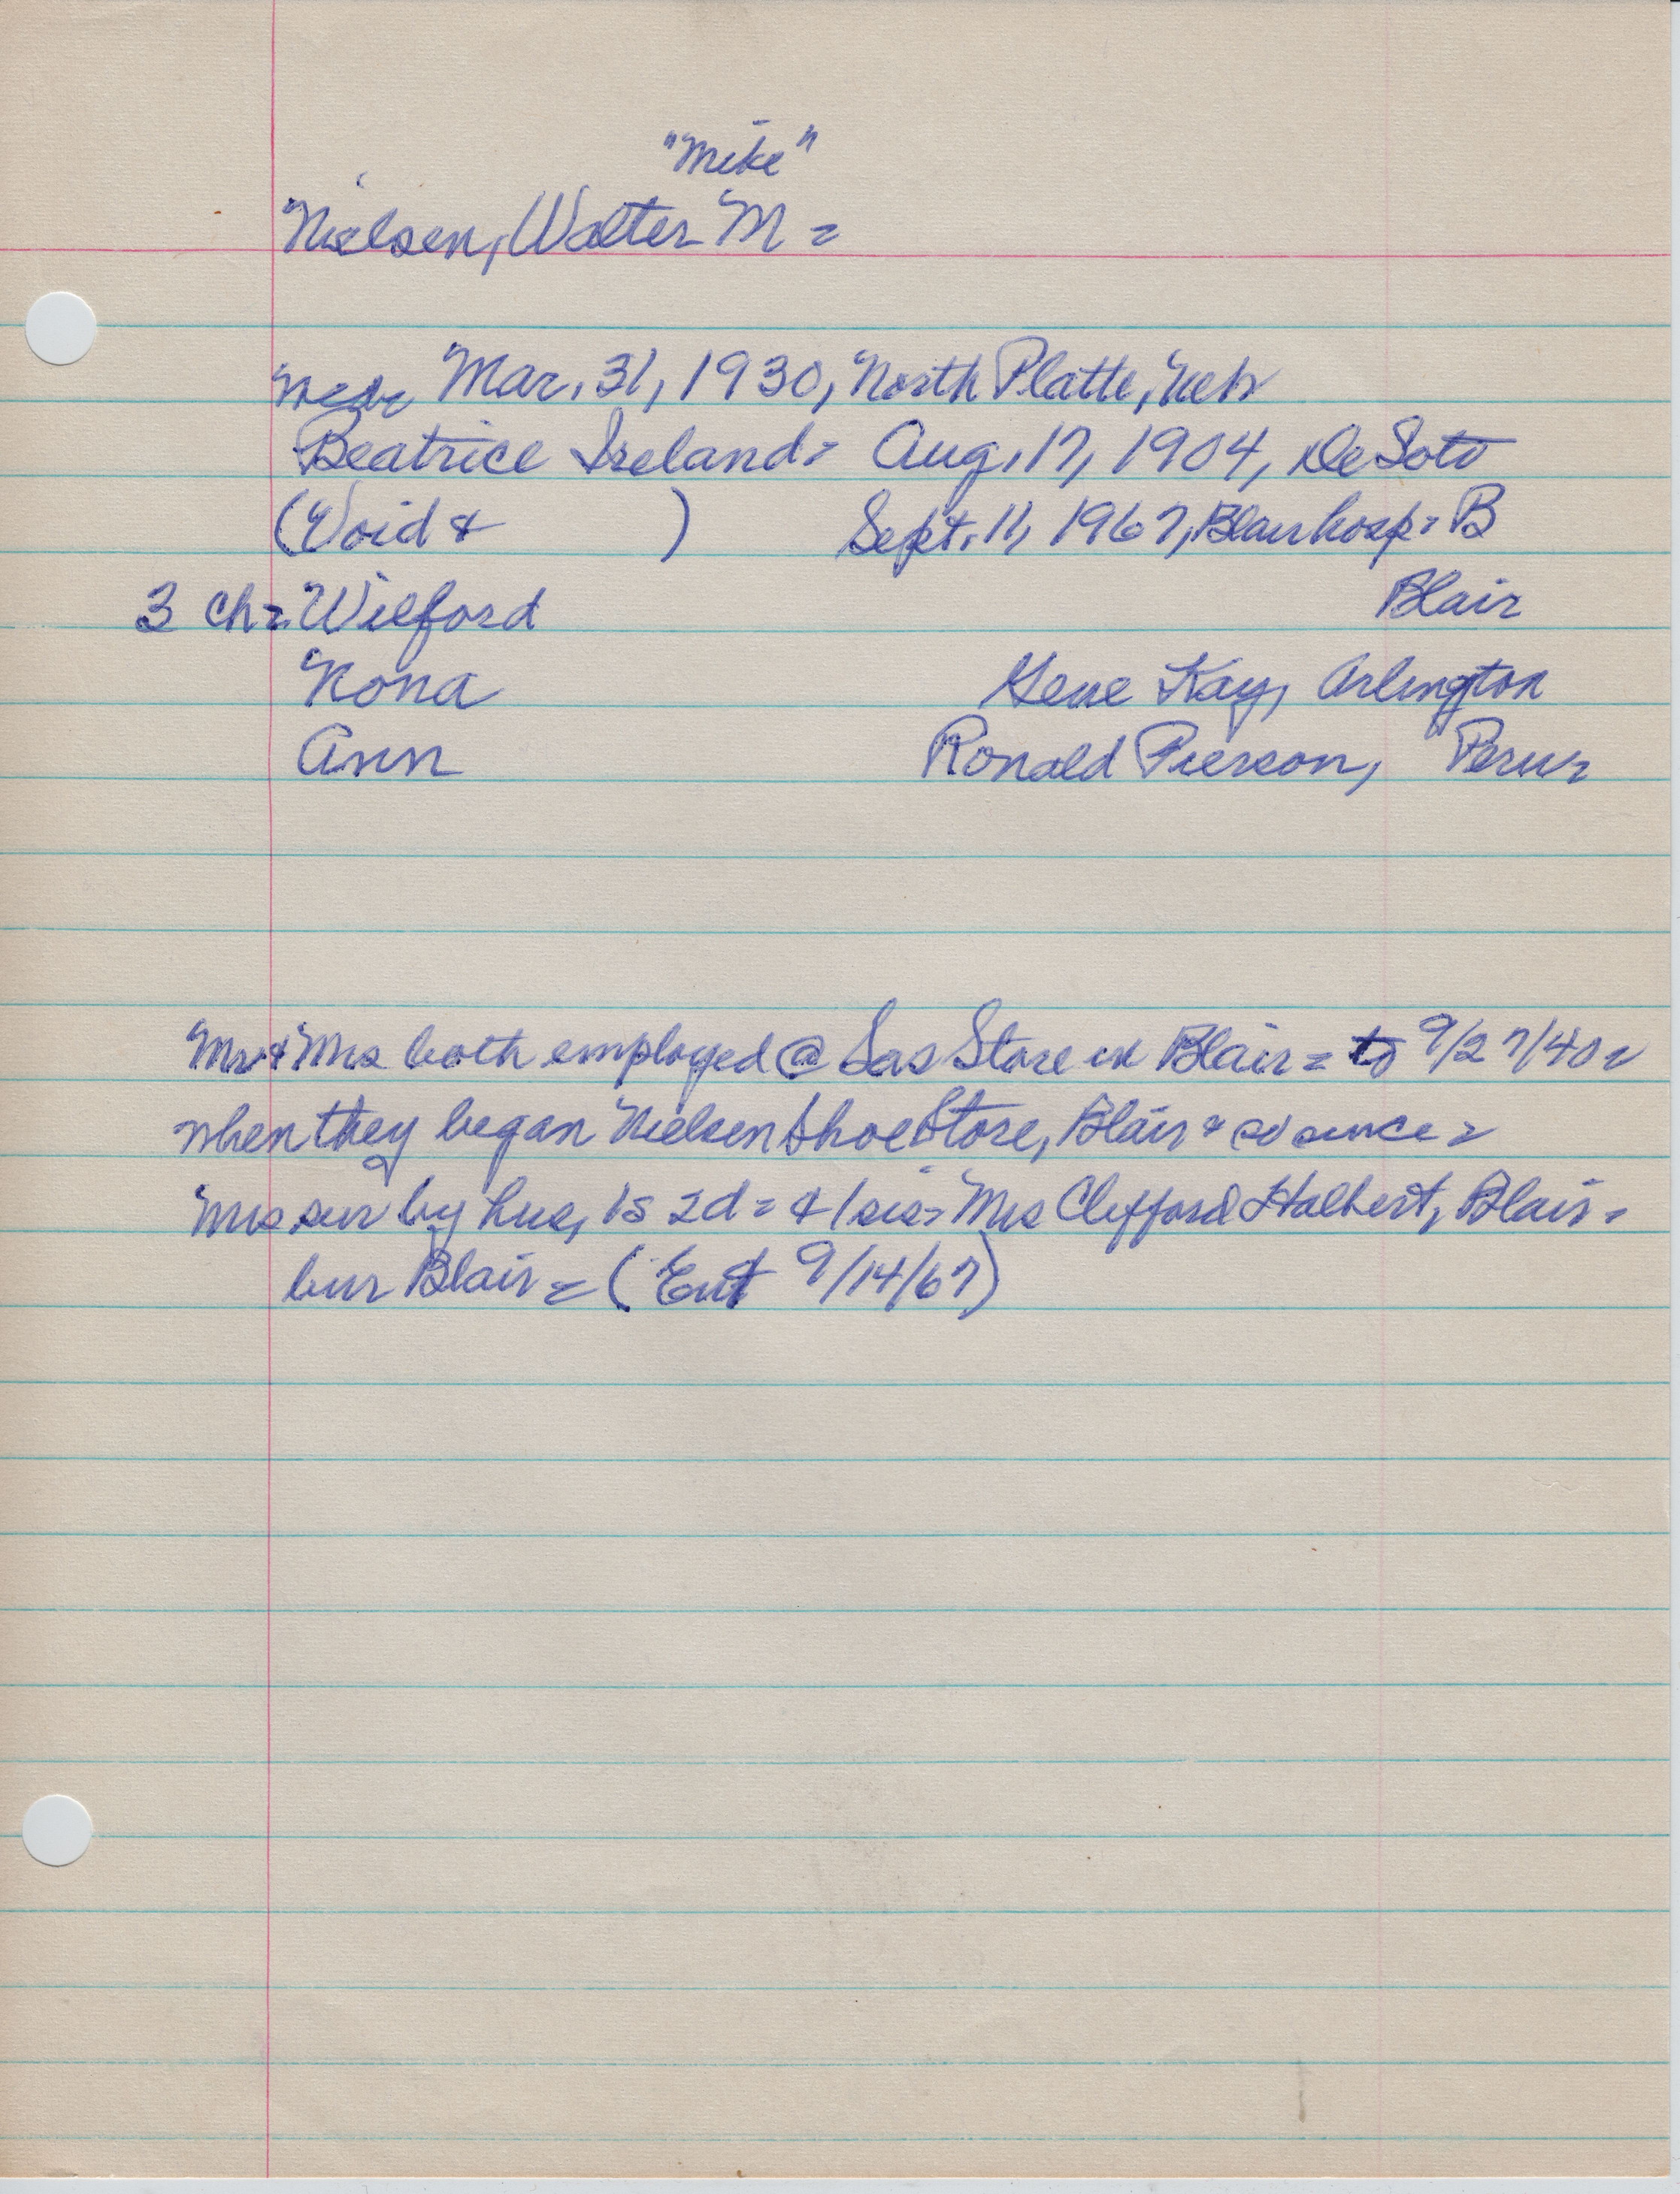 "Mike"
Nielsen, Walter M =
Mar. 31, 1930, North Platte, Neb
Beatrice Ireland = Aug. 17, 1904, De Soto
(Void & ) Sept. 11, 1967, Blair hosp = B
3 ch = Wilford Blair
Nona Gene Kay, Arlington
Ann Ronald Pierson, Peru =
Mr & Mrs both employed @ Sas Store in Blair = to 9/27/40 =
when they began Nielsen Shoe Store, Blair & so since =
Mrs sur by hus, 1s 2d = & 1 sis = Mrs Clifford Halbert, Blair =
bur Blair = (Ent 9/14/67)